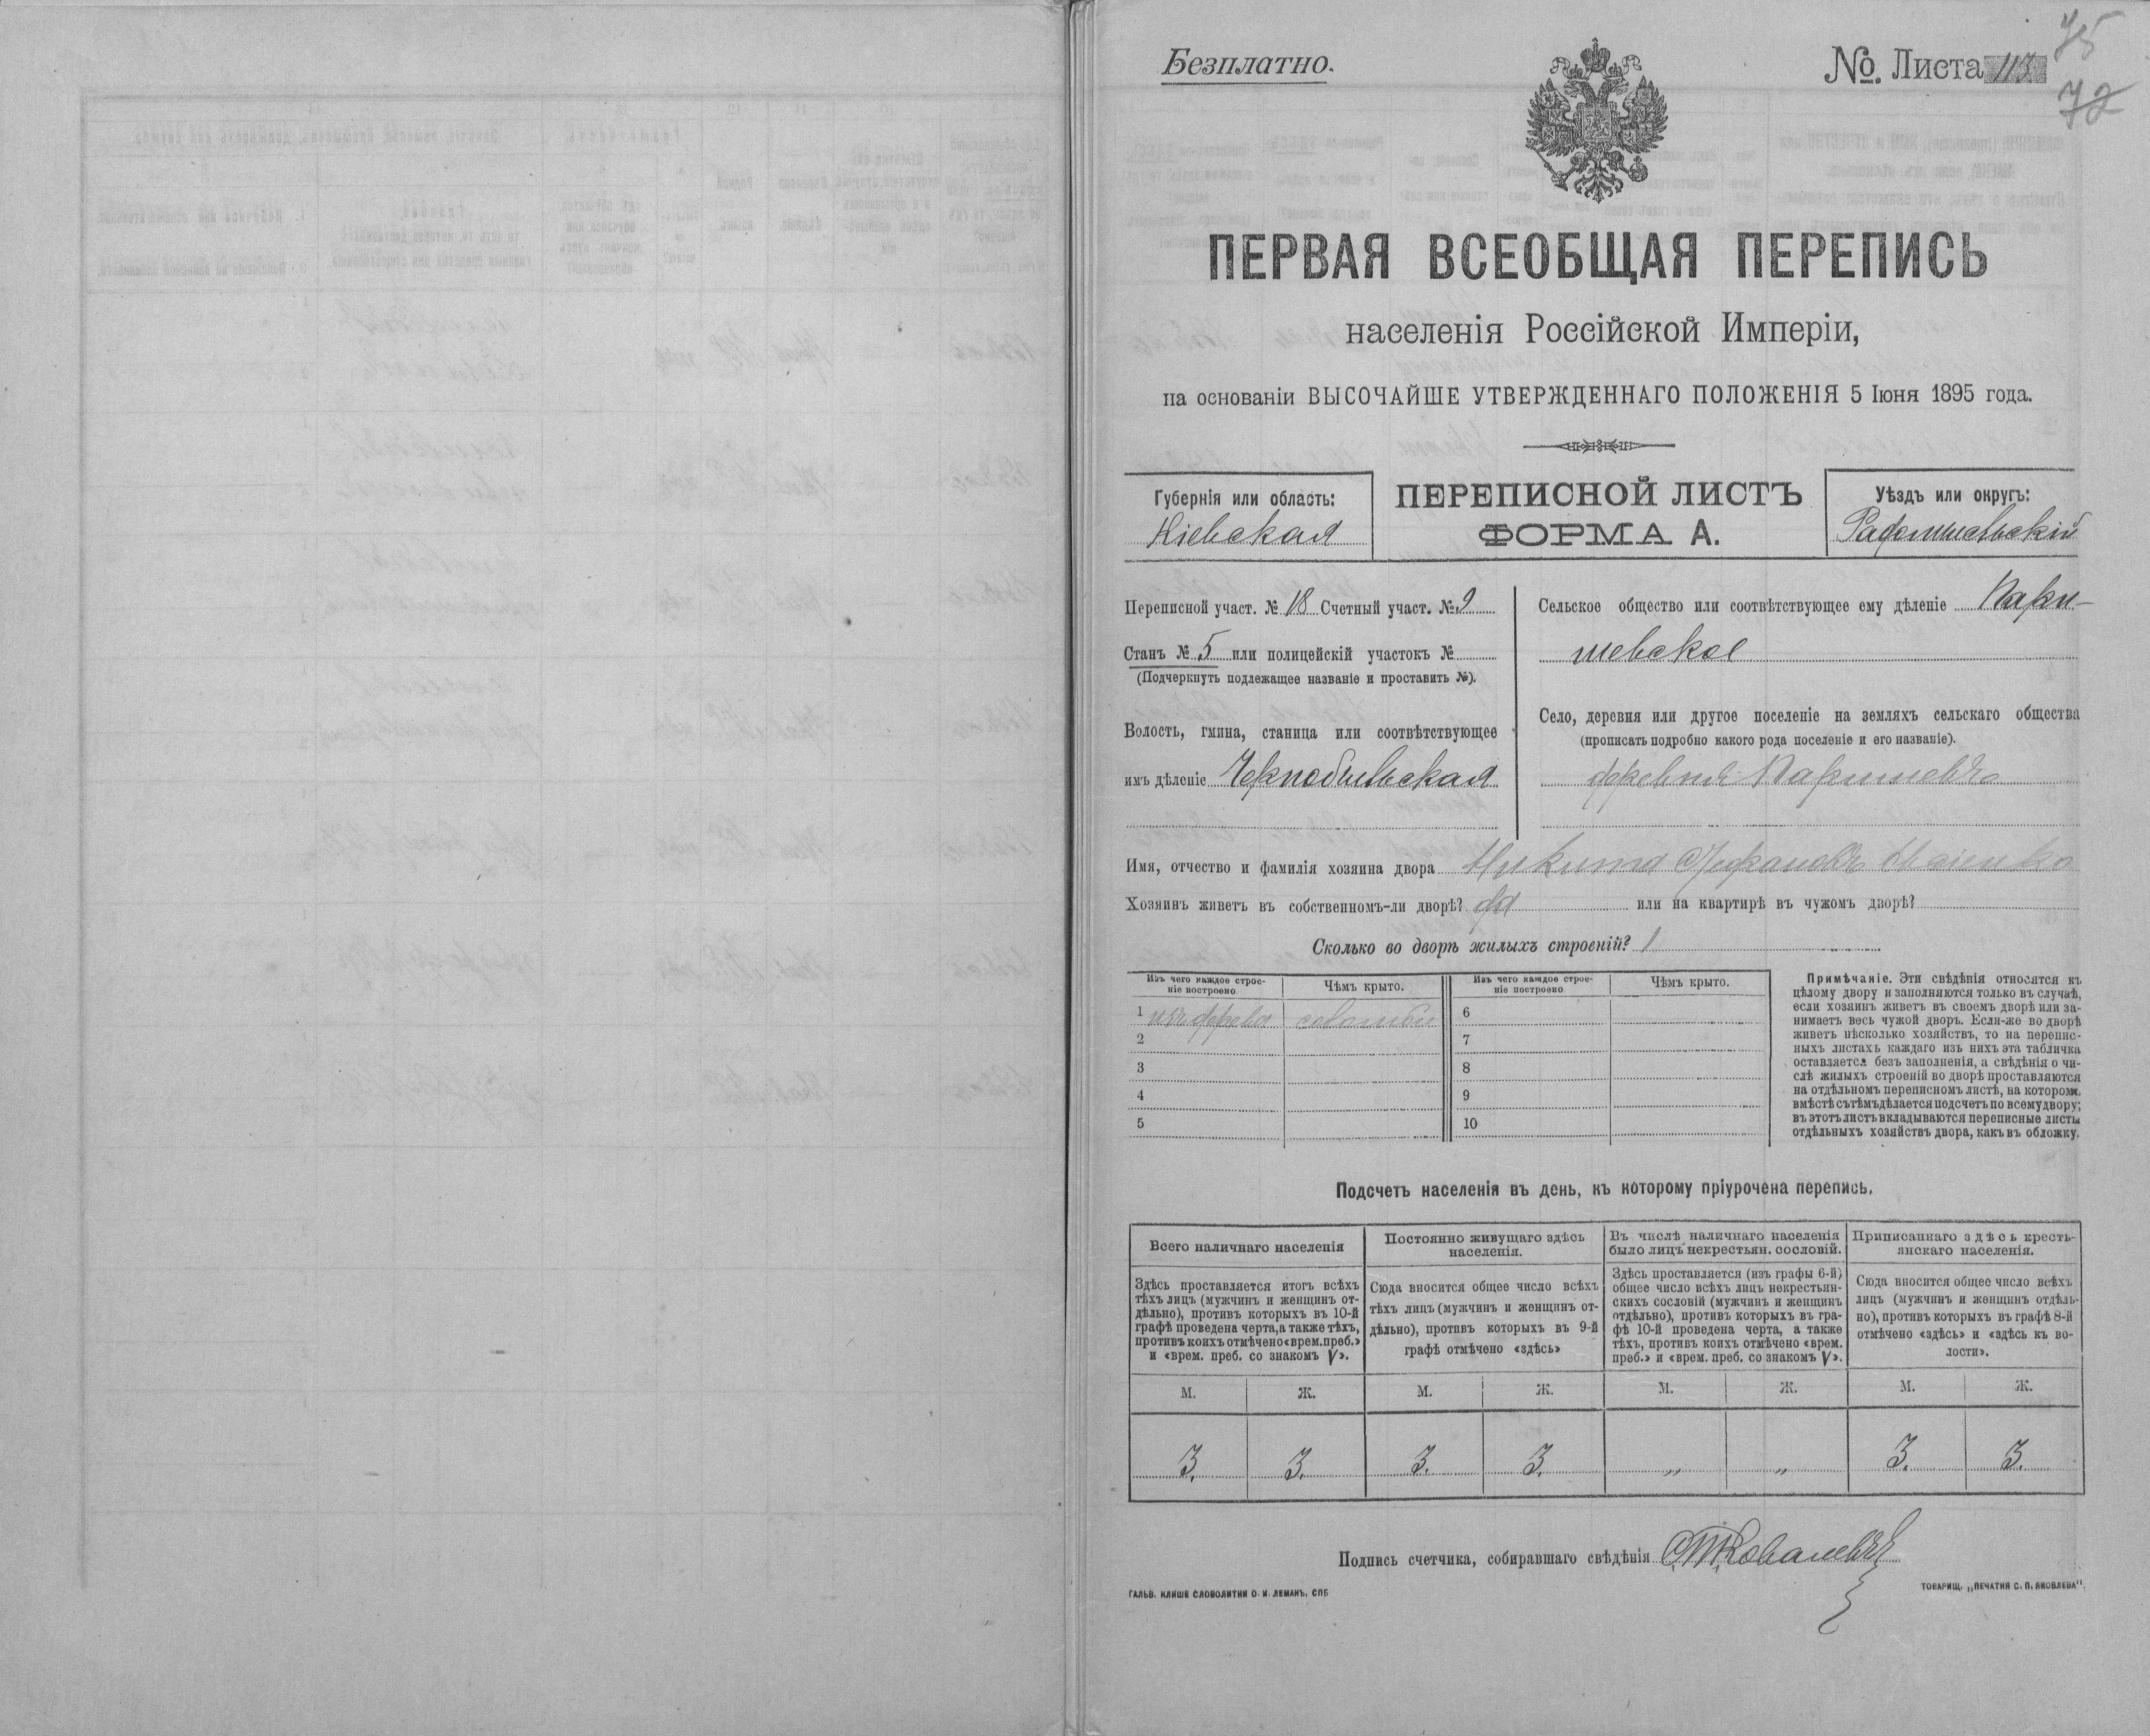 Безплатно.
№. Листа 113
75
72
ПЕРВАЯ ВСЕОБЩАЯ ПЕРЕПИСЬ
населенія Россійской Имперіи,
на основаніи ВЫСОЧАЙШЕ УТВЕРЖДЕННАГО ПОЛОЖЕНІЯ 5 Іюня 1895 года.
Губернія или область:
Кіевская
ПЕРЕПИСНОЙ ЛИСТЪ
ФОРМА А.
Уѣздъ или округъ:
Радомысльскій
Переписной участ. № 18 Счетный участ. № 9
Станъ № 5 или полицейскій участокъ №
(Подчеркнуть подлежащее названіе и проставить №).
Волость, гмина, станица или соотвѣтствующее
имъ дѣленіе Чернобыльская
Сельское общество или соотвѣтствующее ему дѣленіе Пари-
шевское
Село, деревня или другое поселеніе на земляхъ сельскаго общества
(прописать подробно какого рода поселеніе и его названіе).
деревня Паришевъ
Имя, отчество и фамилія хозяина двора Никита
Хозяинъ живетъ въ собственномъ-ли дворѣ? да или на квартирѣ въ чужомъ дворѣ?
Сколько во дворѣ жилыхъ строеній? 1
Изъ чего каждое строе-
ніе построено
Чѣмъ крыто.
Изъ чего каждое строе-
ніе построено
Чѣмъ крыто.
1 изъ дерева соломой
2
3
4
5
6
7
8
9
10
Примѣчаніе. Эти свѣдѣнія относятся къ
цѣлому двору и заполняются только въ случаѣ,
если хозяинъ живетъ въ своемъ дворѣ или за-
нимаетъ весь чужой дворъ. Если-же во дворѣ
живетъ нѣсколько хозяйствъ, то на перепис-
ныхъ листахъ каждаго изъ нихъ эта табличка
оставляется безъ заполненія, а свѣдѣнія о чи-
слѣ жилыхъ строеній во дворѣ проставляются
на отдѣльномъ переписномъ листѣ, на которомъ
вмѣстѣ съ тѣмъ дѣлается подсчетъ по всему двору;
въ этотъ листъ вкладываются переписные листы
отдѣльныхъ хозяйствъ двора, какъ въ обложку.
Подсчетъ населенія въ день, къ которому пріурочена перепись.
Всего наличнаго населенія
Здѣсь проставляется итогъ всѣхъ
тѣхъ лицъ (мужчинъ и женщинъ от-
дѣльно), противъ которыхъ въ 10-й
графѣ проведена черта, а также тѣхъ,
противъ коихъ отмѣчено «врем. преб.»
и «врем. преб. со знакомъ V».
Постоянно живущаго здѣсь
населенія.
Сюда вносится общее число всѣхъ
тѣхъ лицъ (мужчинъ и женщинъ от-
дѣльно), противъ которыхъ въ 9-й
графѣ отмѣчено «здѣсь»
Въ числѣ наличнаго населенія
было лицъ некрестьян. сословій.
Здѣсь проставляется (изъ графы 6-й)
общее число всѣхъ лицъ некрестьян-
скихъ сословій (мужчинъ и женщинъ
отдѣльно), противъ которыхъ въ гра-
фѣ 10-й проведена черта, а также
тѣхъ, противъ коихъ отмѣчено «врем.
преб.» и «врем. преб. со знакомъ V».
Приписаннаго здѣсь кресть-
янскаго населенія.
Сюда вносится общее число всѣхъ
лицъ (мужчинъ и женщинъ отдѣль-
но), противъ которыхъ въ графѣ 8-й
отмѣчено «здѣсь» и «здѣсь къ во-
лости».
М. Ж. М. Ж. М. Ж. М. Ж.
3. 3. 3. 3. „ „ 3. 3.
Подпись счетчика, собиравшаго свѣдѣнія
ГАЛЬВ. КЛИШЕ СЛОВОЛИТНИ О. И. ЛЕМАНЪ, СПБ
ТОВАРИЩ. „ПЕЧАТНЯ С. П. ЯКОВЛЕВА“.